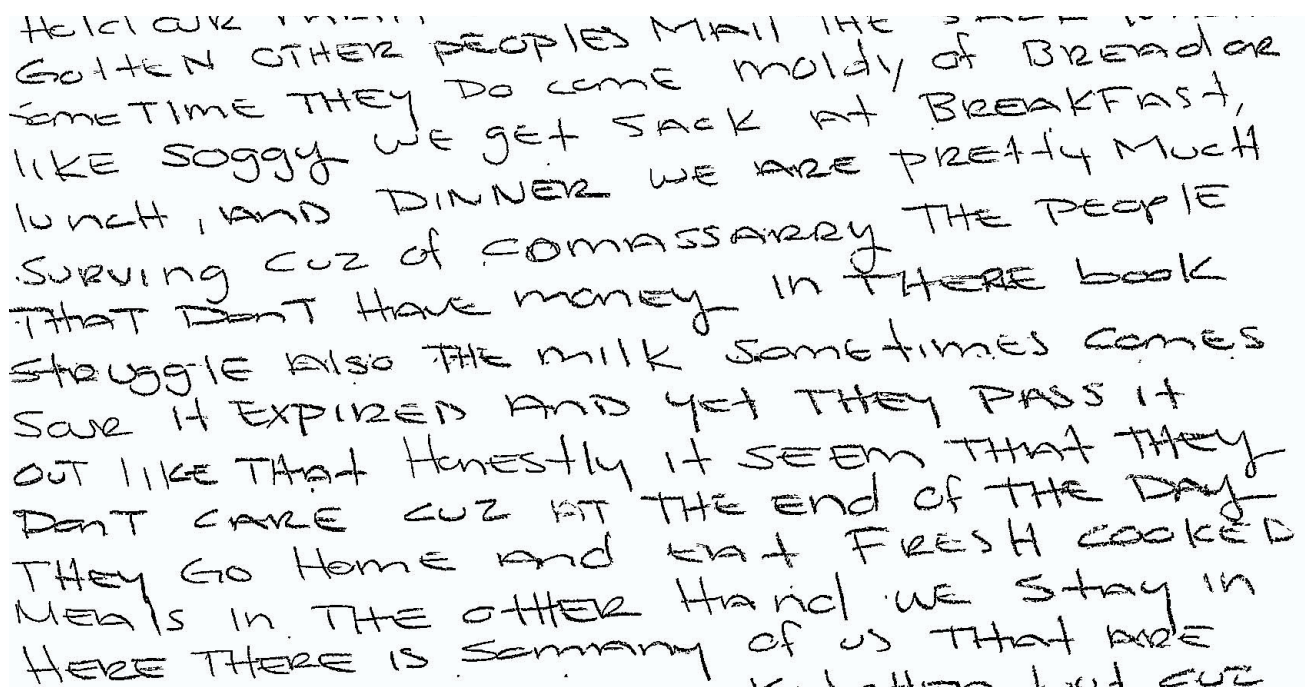 Hold our
GOttEN OTHER pEOplES MAil THE SACK
SomETIME THEY DO come moldy of BREAd OR
likE soggy WE gEt SACK At BREAKFASt,
lunCH, AND DINNER WE ARE pREtty MucH
SuRViNg cuz of COMASSARRY THE PEOplE
THAT DonT HAVE monEy in THERE book
StRugglE Also THE milk SomEtimES ComES
SouR it EXPIRED AND yEt THEY PASS it
OUT likE THAt HonEStly it SEEM THAt THEY
DonT CARE cuz AT THE End of THE DAy
THEy GO HomE And EAt FRESH COOkED
MEAls in THE OtHER HAnd WE StAy in
HERE THERE IS SomAny of us THAt ARE
but cuz